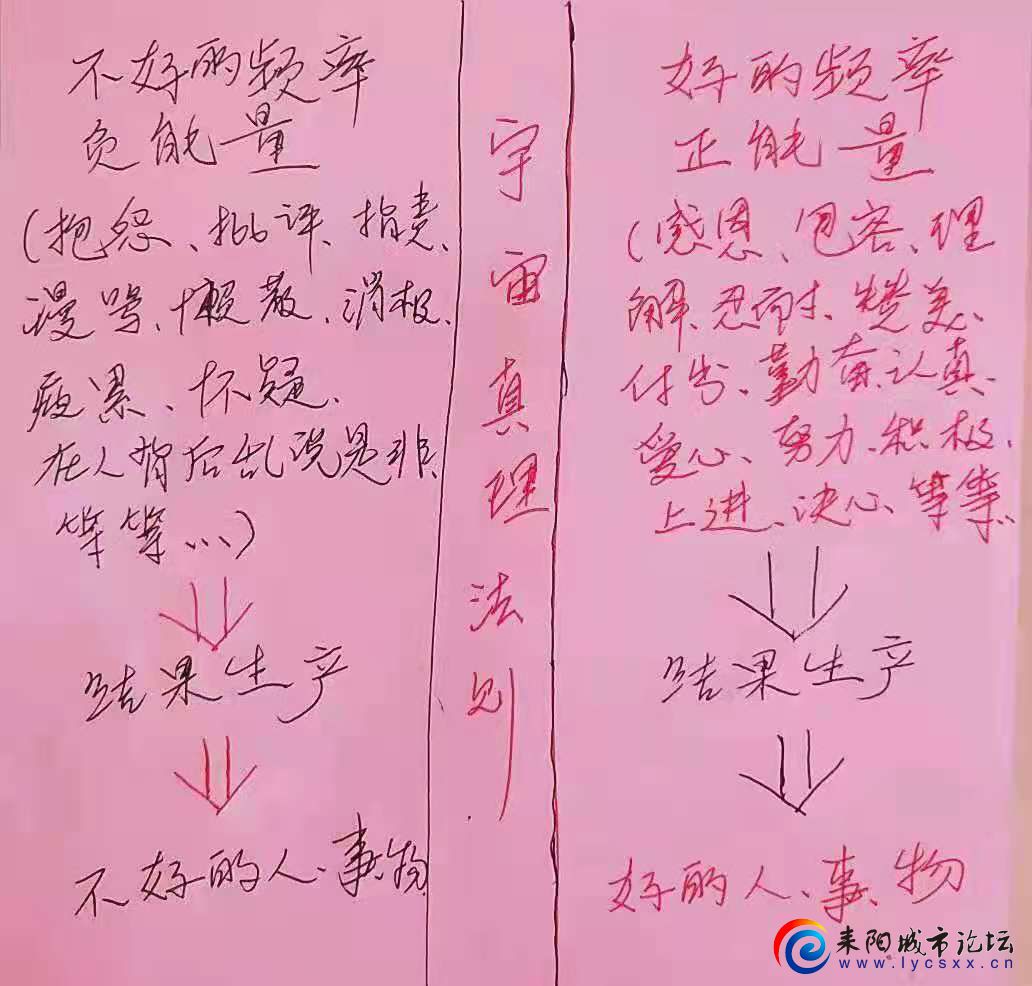 不好的频率
负能量
(抱怨、批评、指责、
漫骂、懒散、消极、
疲累、怀疑、
在人背后乱说是非、
等等...)
结果生产
不好的人、事、物
宇宙真理法则
好的频率
正能量
(感恩、包容、理
解、忍耐、赞美、
付出、勤奋、认真、
爱心、努力、积极、
上进、决心、等等..
结果生产
好的人、事、物
耒阳城市论坛
www.lycsxx.cn